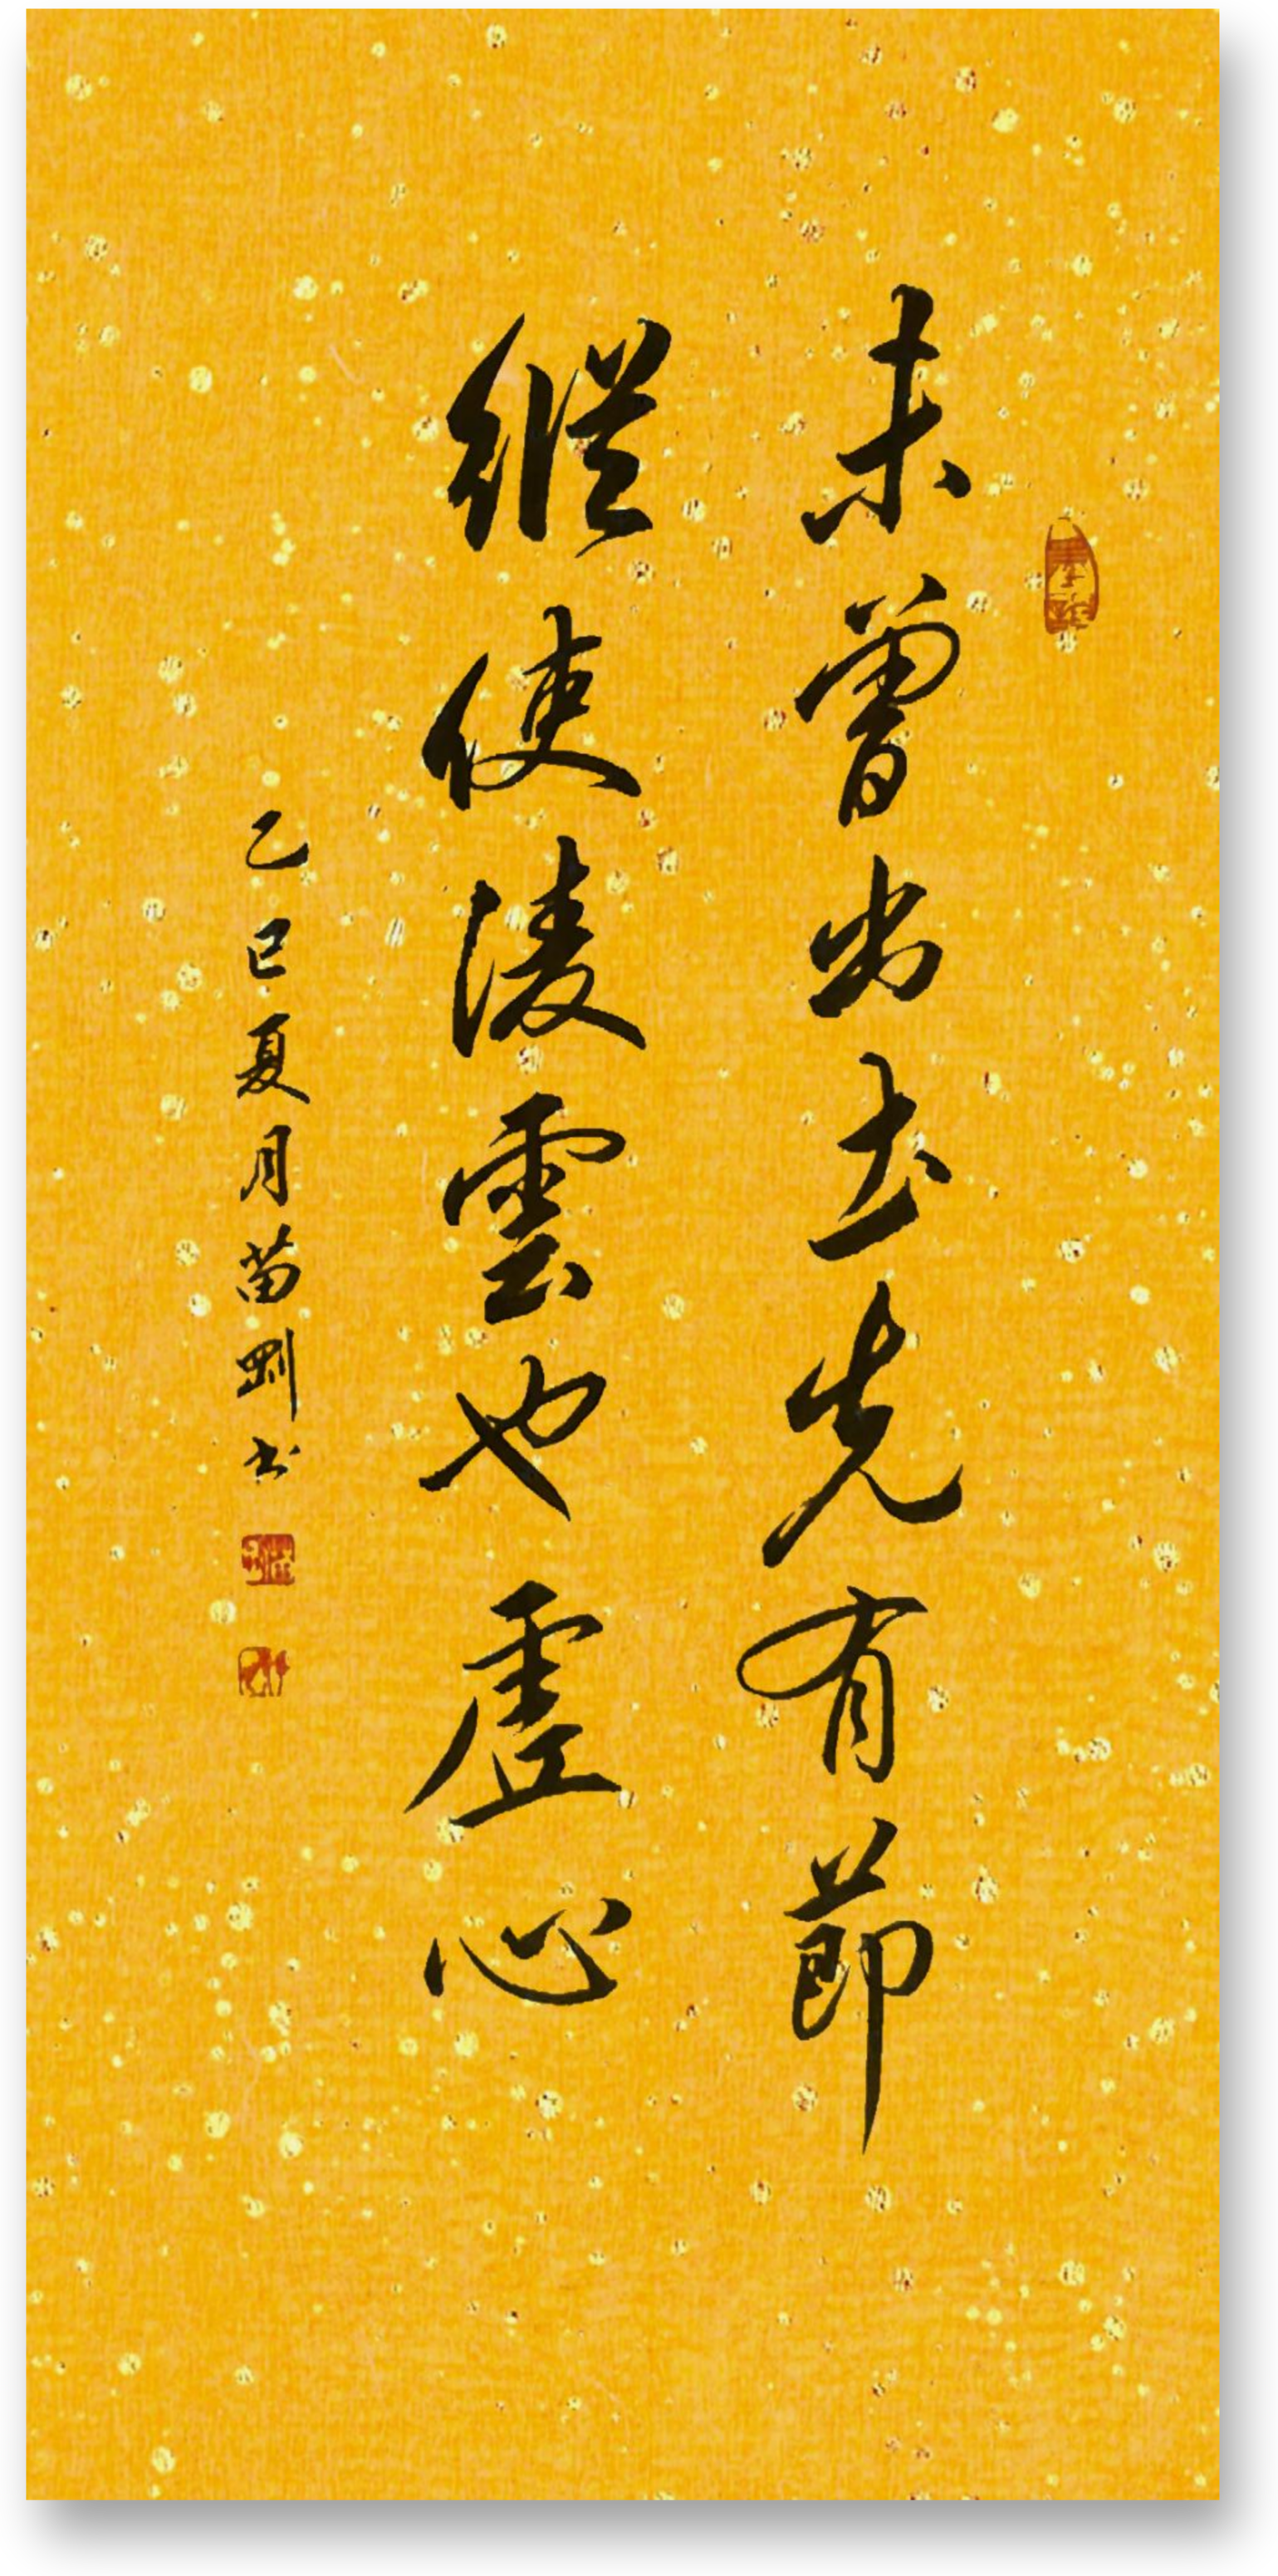 未曾出土先有節
縱使淩雲也虛心
乙巳夏月苗剛书